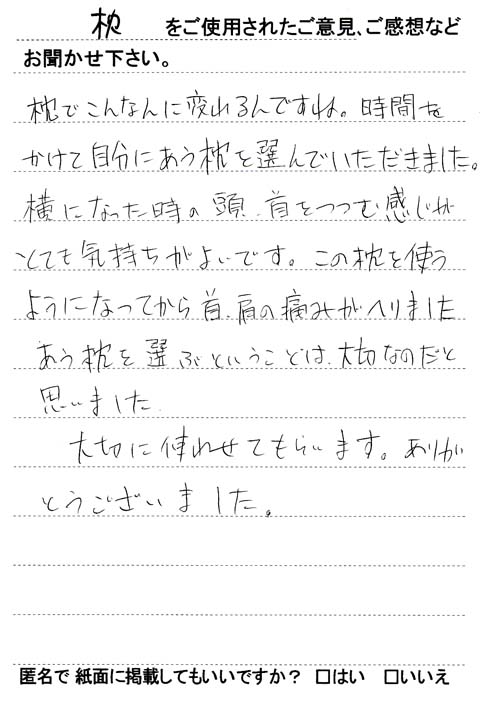 枕 をご使用されたご意見、ご感想など
お聞かせ下さい。
枕でこんなんに変わるんですね。時間を
かけて自分にあう枕を選んでいただきました。
横になった時の頭、首をつつむ感じが
とても気持ちがよいです。この枕を使う
ようになってから首、肩の痛みがへりました
あう枕を選ぶということは、大切なのだと
思いました
大切に使わせてもらいます。ありが
とうございました。
匿名で 紙面に掲載してもいいですか? □はい □いいえ